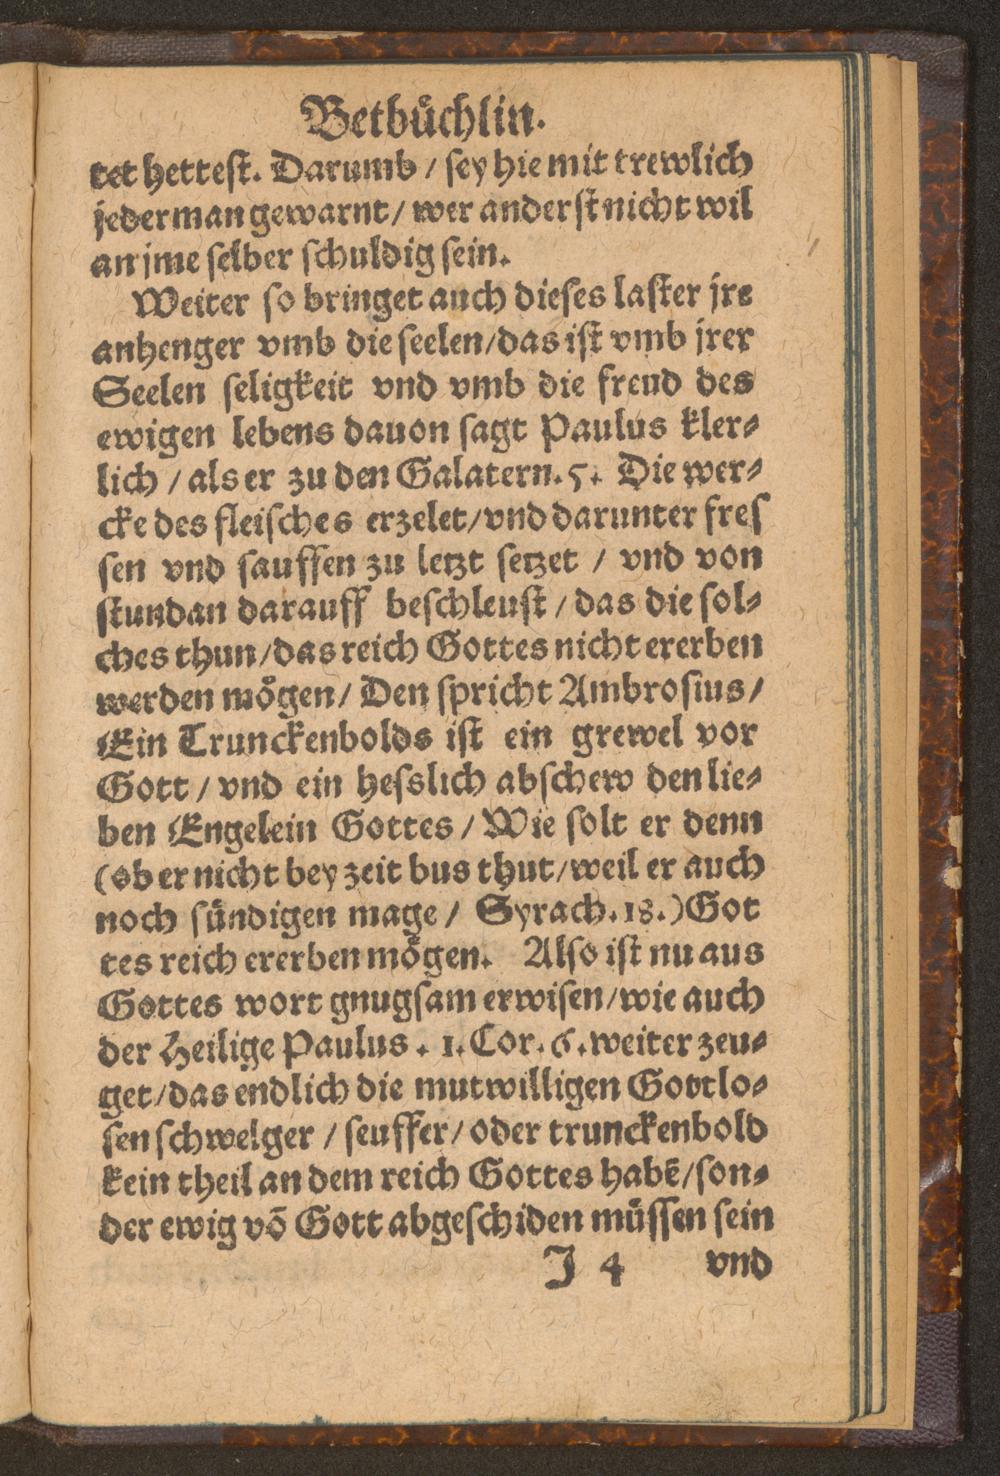 Betbüchlin.
tet hettest. Darumb / sey hie mit trewlich
jederman gewarnt / wer anderst nicht wil
an jme selber schuldig sein.
Weiter so bringet auch dieses laster jre
anhenger vmb die seelen / das ist vmb jrer
Seelen seligkeit vnd vmb die freud des
ewigen lebens dauon sagt Paulus kler⸗
lich / als er zu den Galatern. 5. Die wer⸗
cke des fleisches erzelet / vnd darunter fres
sen vnd sauffen zu letzt setzet / vnd von
stundan darauff beschleust / das die sol⸗
ches thun / das reich Gottes nicht ererben
werden mögen / Den spricht Ambrosius /
Ein Trunckenbolds ist ein grewel vor
Gott / vnd ein hesslich abschew den lie⸗
ben Engelein Gottes / Wie solt er denn
(ob er nicht bey zeit bus thut / weil er auch
noch sündigen mage / Syrach. 18.) Got
tes reich ererben mögen. Also ist nu aus
Gottes wort gnugsam erwisen / wie auch
der Heilige Paulus. 1. Cor. 6. weiter zeu⸗
get / das endlich die mutwilligen Gottlo⸗
sen schwelger / seuffer / oder trunckenbold
kein theil an dem reich Gottes habē / son⸗
der ewig vō Gott abgeschiden müssen sein
J 4 vnd